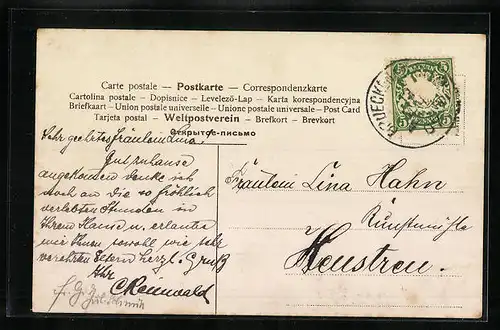 Carte postale — Postkarte — Correspondenzkarte
Cartolina postale - Dopisnice - Levelező-Lap - Karta korespondencyjna
Briefkaart - Union postale universelle - Unione postale universale - Post Card
Tarjeta postal - Weltpostverein - Brefkort - Brevkort
Открытое-письмо
5 5
5 5
BRUECKEN
Sehr geehrtes Fräulein Lina.
Gut zuhause
angekommen denke ich
noch an die so fröhlich
verlebten Stunden in
Ihrem Hause u. erlaube
mir Ihnen sowohl wie sehr
verehrten Eltern herzl. Gruß
Ihr
Fräulein Lina Hahn
Kunstmühle
Heustreu.